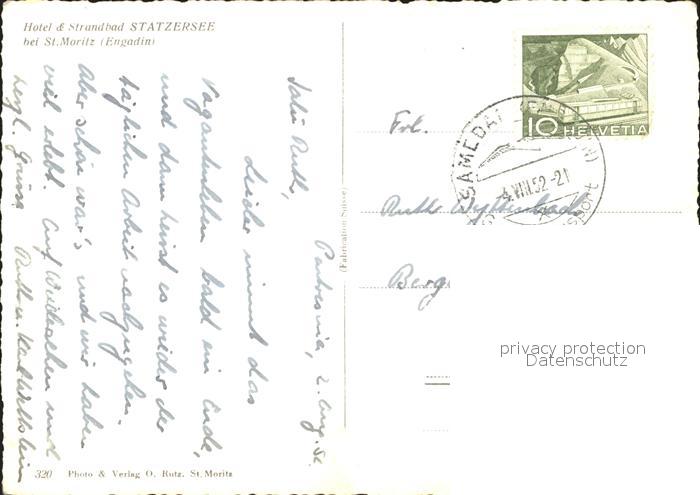 Hotel & Strandbad STATZERSEE
bei St. Moritz (Engadin)
Pontresina, 2. Aug. 52
Salü Ruth,
Leider nimmt das
Vagantenleben bald ein Ende,
und dann heisst es wieder der
täglichen Arbeit nachzugehen.
Aber schön war's und wir haben
viel erlebt. Auf Wiedersehen und
herzl. Grüsse Ruth u. Karl Wettstein
320 Photo & Verlag O. Rutz, St. Moritz
(Fabrication Suisse)
10 HELVETIA
SAMEDAN (ENGADIN)
4.VIII.52-21
Sport
Frl.
Ruth Wyttenbach
Berg
privacy protection
Datenschutz